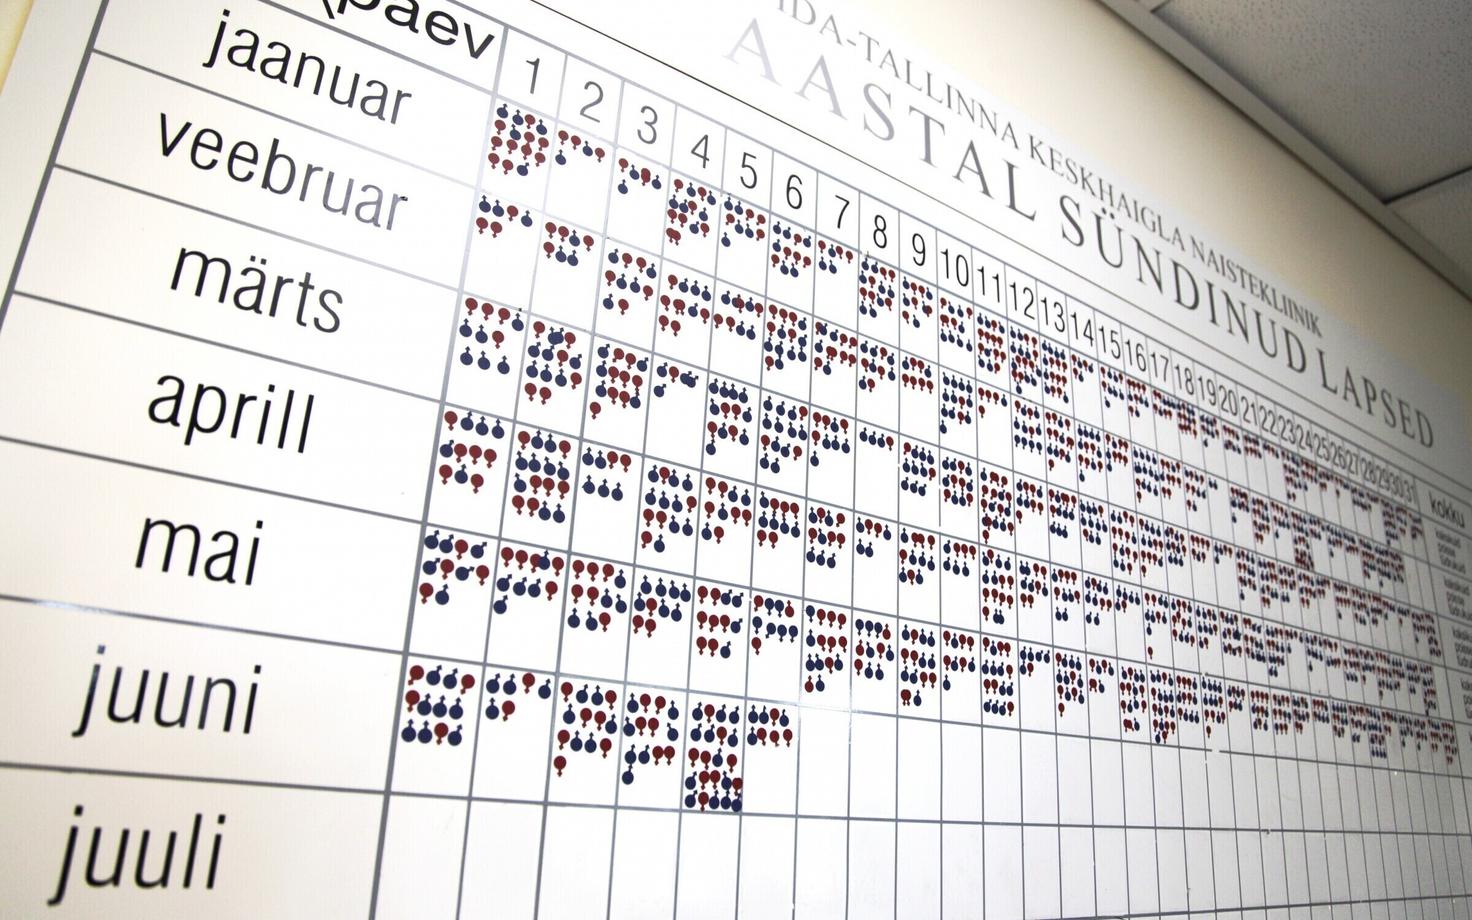 IDA-TALLINNA KESKHAIGLA NAISTEKLIINIK
AASTAL SÜNDINUD LAPSED
päev 1 2 3 4 5 6 7 8 9 10 11 12 13 14 15 16 17 18 19 20 21 22 23 24 25 26 27 28 29 30 31 kokku
jaanuar
veebruar
märts
aprill
mai
juuni
juuli